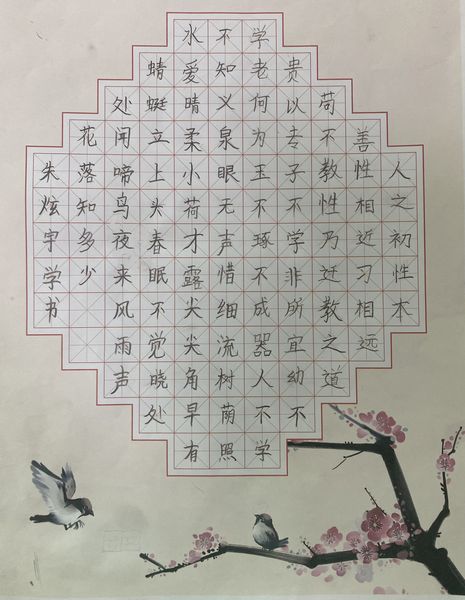 人之初性本
善性相近习相远
苟不教性乃迁教之道
贵以专子不学非所宜幼不
学老何为玉不琢不成器人不学
不知义泉眼无声惜细流树荫照
水爱晴柔小荷才露尖尖角早有
蜻蜓立上头春眠不觉晓处
处闻啼鸟夜来风雨声
花落知多少
朱炫宇学书